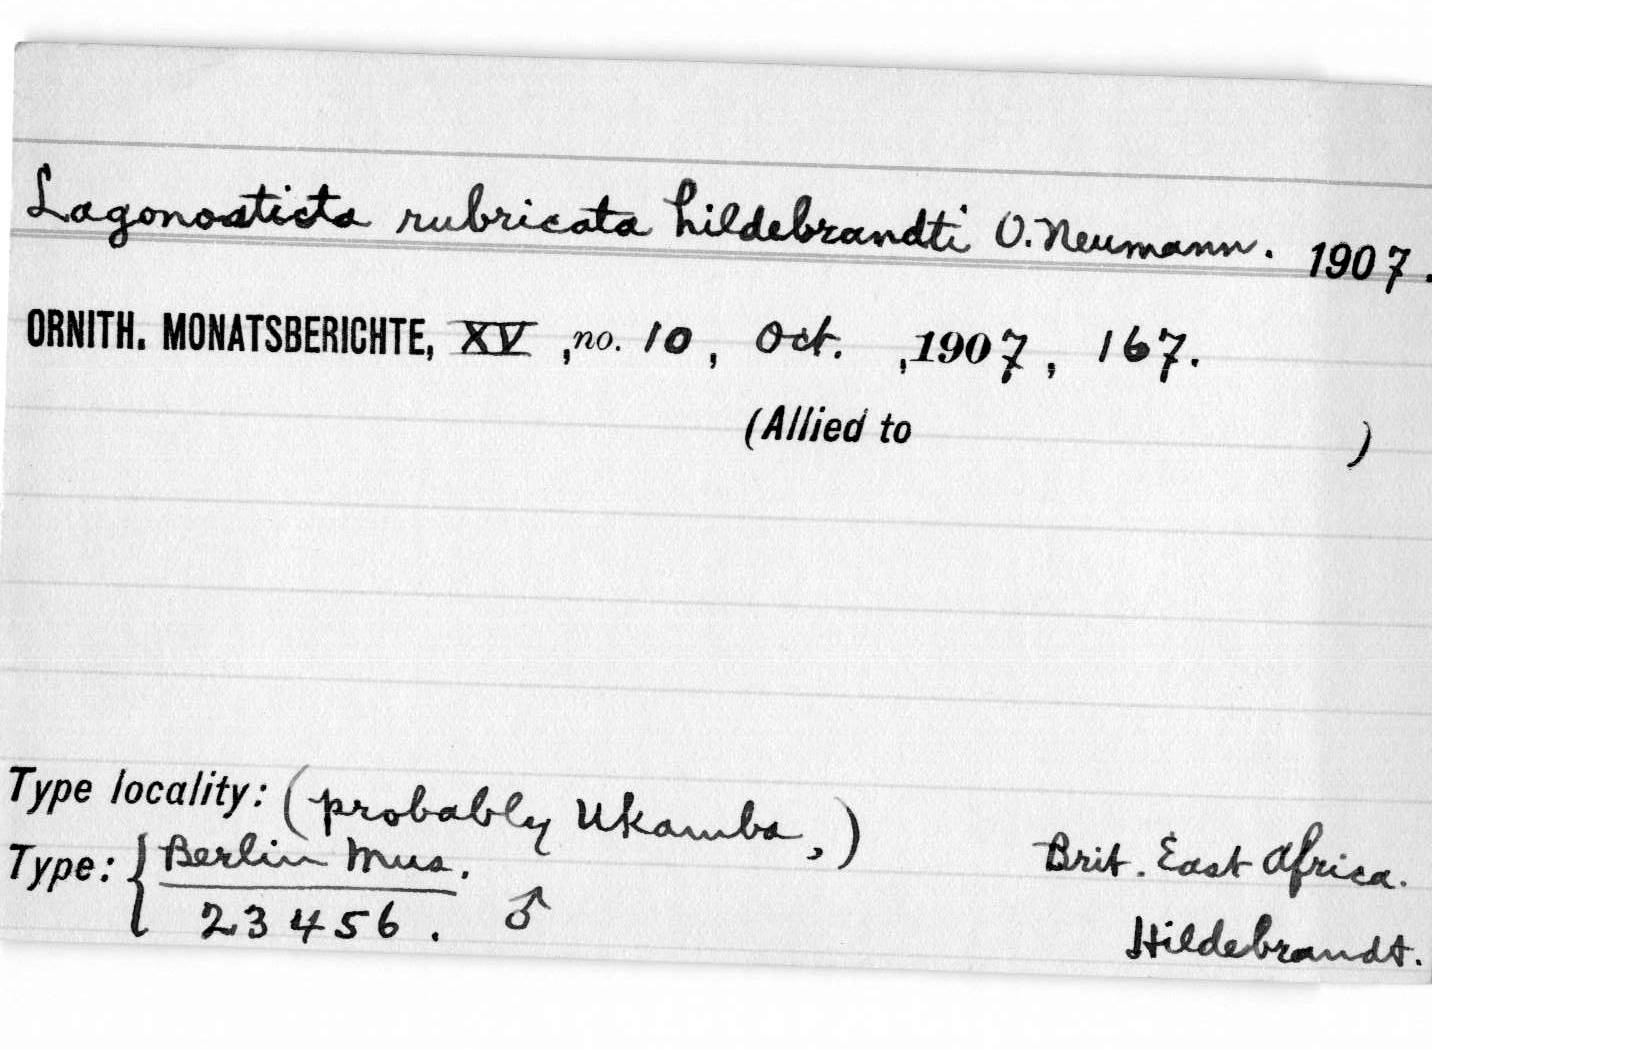 Lagonosticta rubricata hildebrandti O. Neumann. 1907.
ORNITH. MONATSBERICHTE, XV, no. 10, Oct. , 1907, 167.
(Allied to )
Type locality: (probably Ukamba,) Brit. East Africa.
Type: { Berlin Mus.
23456. ♂ Hildebrandt.